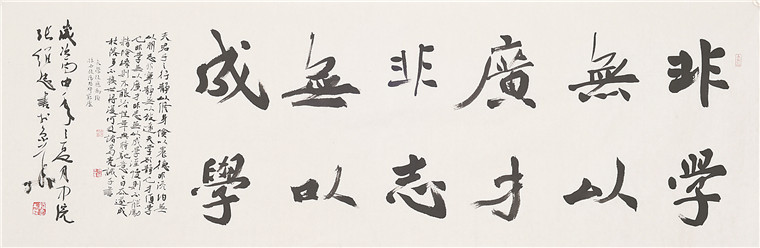 非学
無以
廣才
非志
無以
成學
夫君子之行靜以修身儉以養德非淡泊無
以明志非寧靜無以致遠夫學須靜也才須學
也非學無以廣才非志無以成學淫慢則不能勵
精險躁則不能治性年與時馳意與日去遂成
枯落多不接世將復何及諸葛亮誡子書
歲次丙申年之夏月中浣
張維忠書於京華